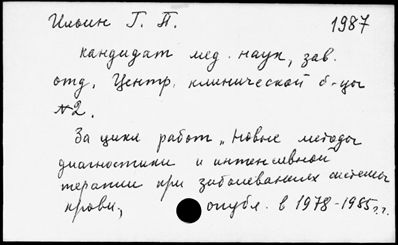 Ильин Г. П. 1987
кандидат мед. наук, зав.
отд. Центр. клинической б-цы
№2.
За цикл работ „Новые методы
диагностики и интенсивной
терапии при заболеваниях системы
крови, опубл. в 1978-1985 г.г.